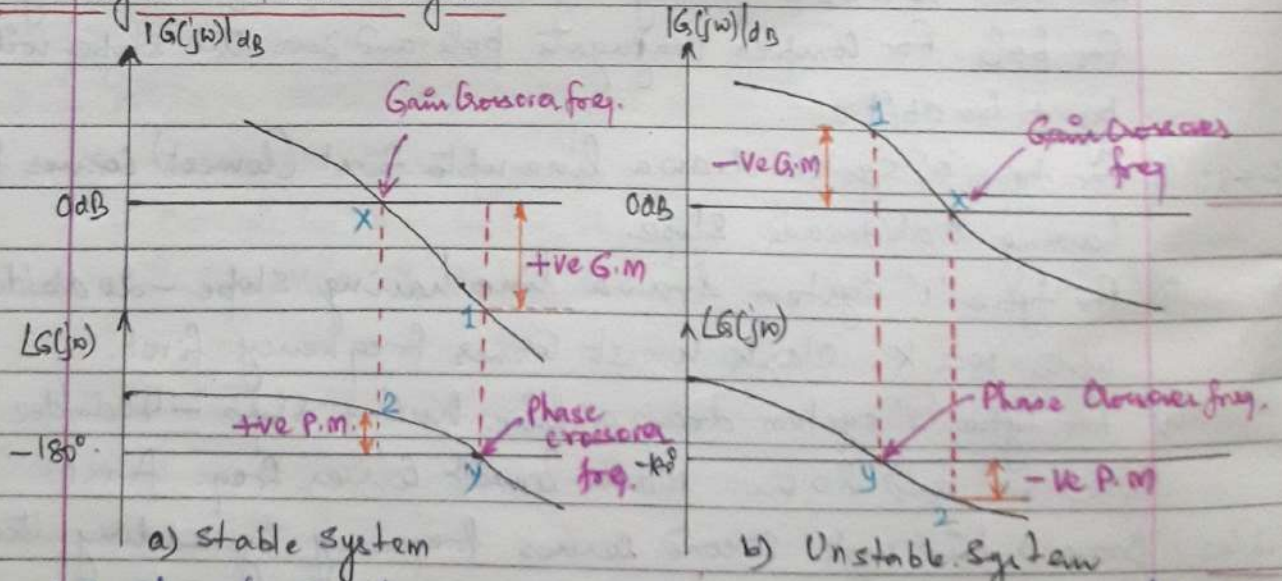 |G(jω)|dB
Gain Crossover freq.
0dB
X
+ve G.M
1
∠G(jω)
2
+ve P.M.
-180°
Phase
crossover
freq.
y
a) Stable System
|G(jω)|dB
1
Gain Crossover
freq
-ve G.M
0dB
X
∠G(jω)
Phase Crossover freq.
-180°
y
-ve P.M
2
b) Unstable System